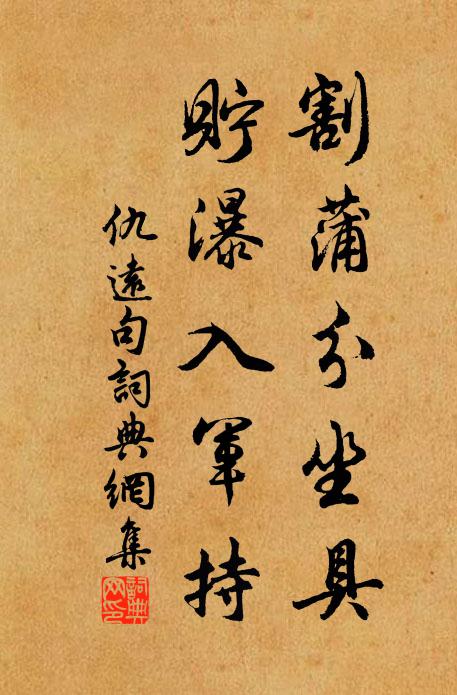 割蒲分坐具
貯瀑入軍持
仇遠句詞典網集
詞典網印